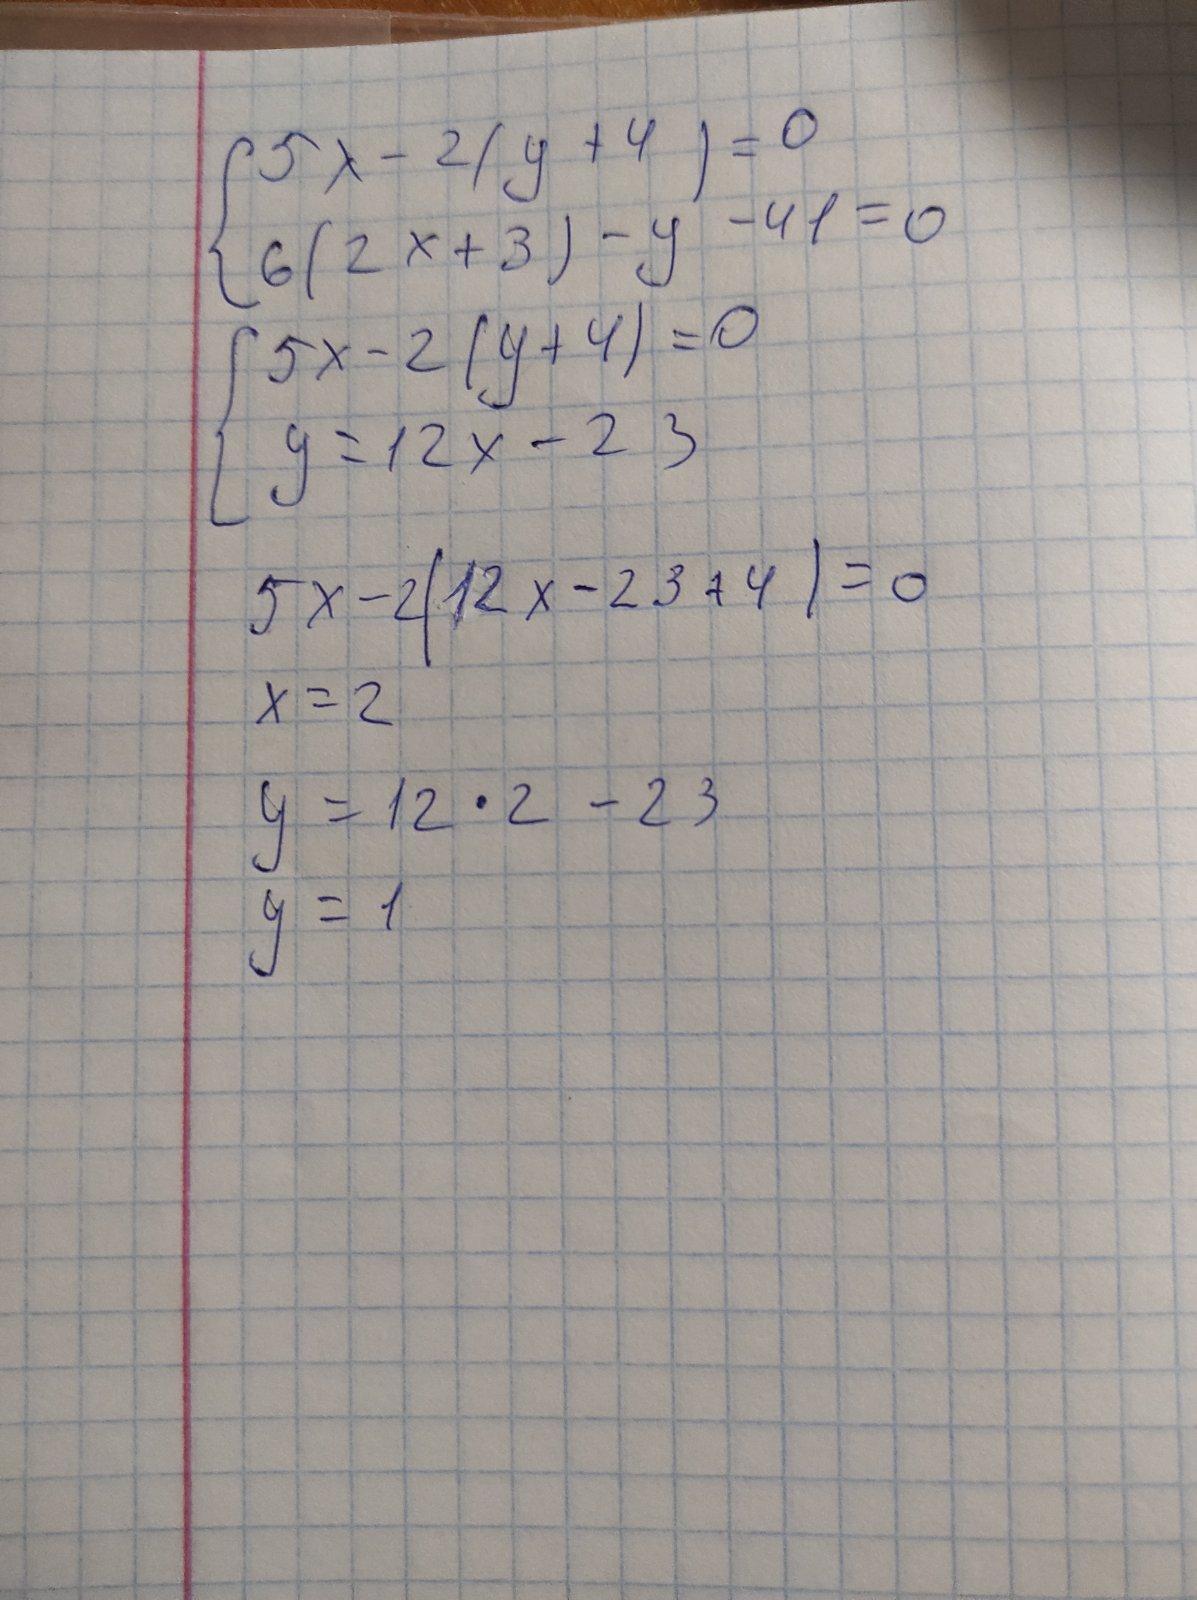 5x-2(y+4)=0
6(2x+3)-y-41=0
5x-2(y+4)=0
y=12x-23
5x-2(12x-23+4)=0
x=2
y=12·2-23
y=1